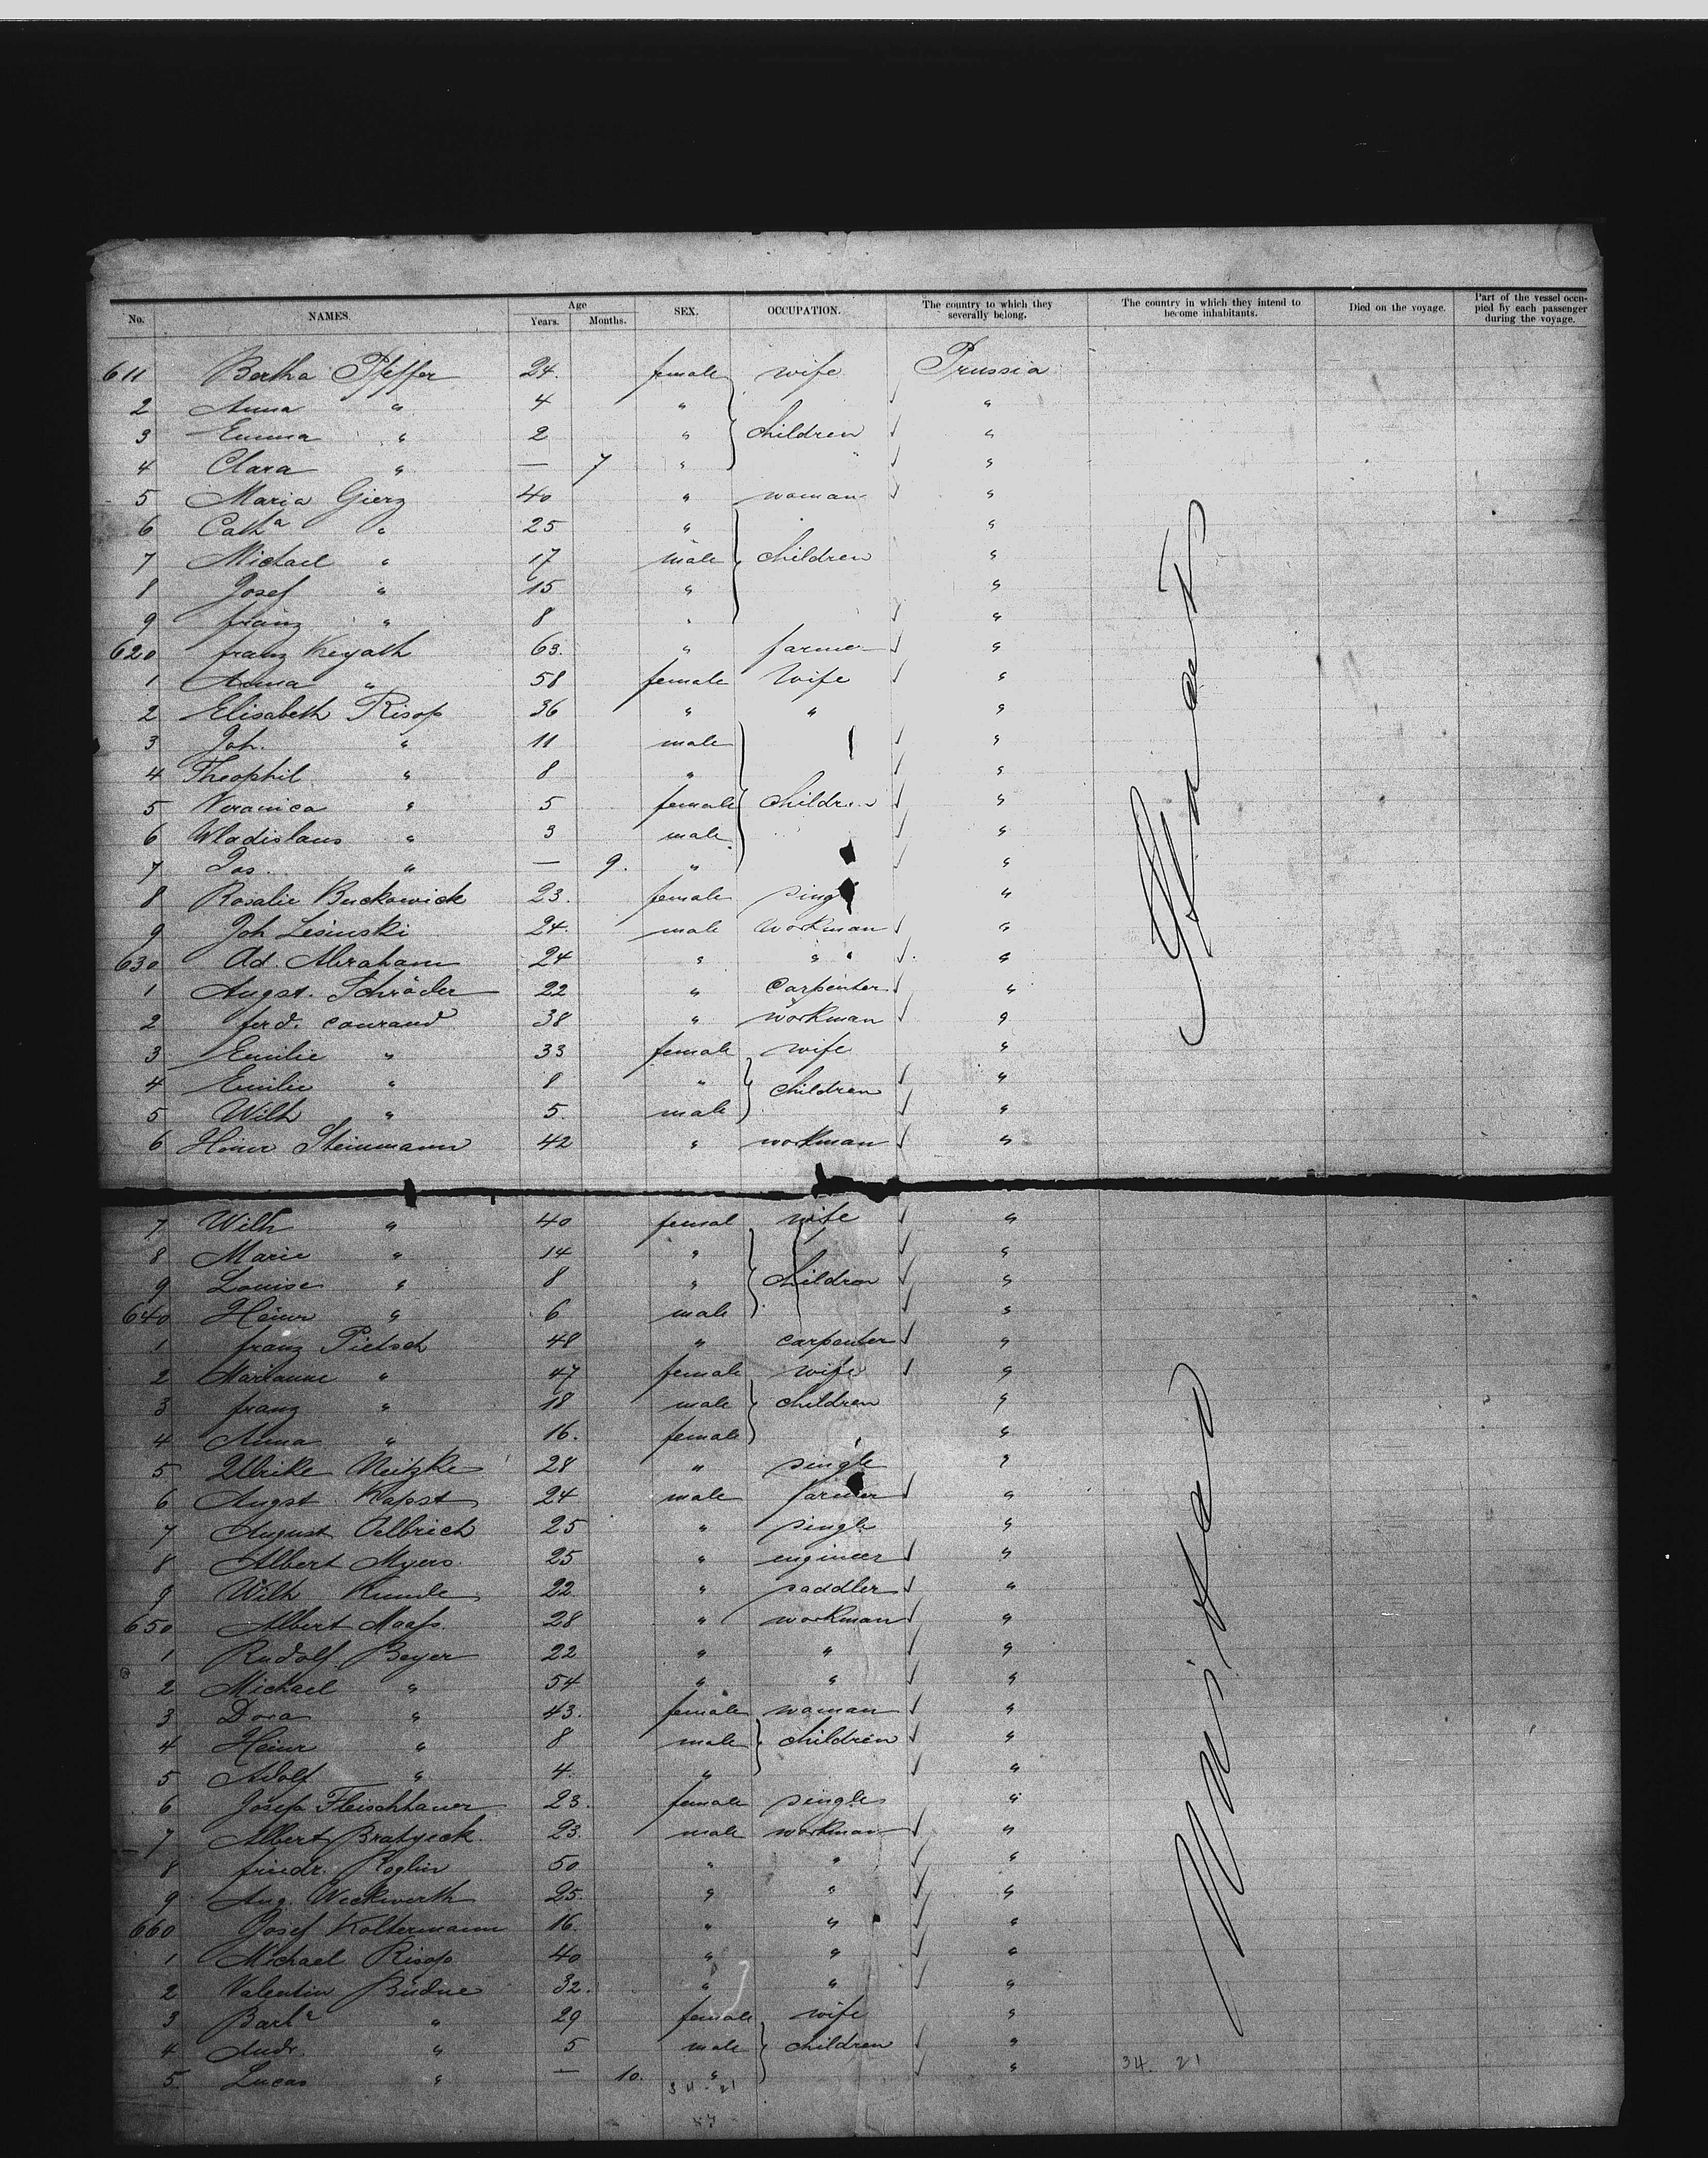 No. NAMES. Age Years. Months. SEX. OCCUPATION. The country to which they severally belong. The country in which they intend to become inhabitants. Died on the voyage. Part of the vessel occupied by each passenger during the voyage.
611 Bertha Pfeffer 24. female wife Prussia
2 Anna " 4 " "
3 Emma " 2 " children "
4 Clara " — 7 " "
5 Maria Gierz 40 " woman "
6 Cathª " 25 " "
7 Michael " 17 male children "
8 Josef " 15 " "
9 franz " 8 " "
620 franz Kiyath 63. " farmer "
1 Anna " 58 female wife "
2 Elisabeth Risop 36 " " "
3 Joh. " 11 male "
4 Theophil " 8 " "
5 Veronica " 5 female children "
6 Wladislaus " 3 male "
7 Jos. " — 9. " "
8 Rosalie Buckowick 23. female single "
9 Joh Lesinski 24. male workman "
630 Ad. Abraham 24 " " "
1 Augst. Schröder 22 " carpenter "
2 ferd. Conrand 38 " workman "
3 Emilie " 33 female wife "
4 Emilie " 8 " children "
5 Wilh " 5. male "
6 Heinr Steinmann 42 " workman "
7 Wilh " 40 femal wife "
8 Marie " 14 " "
9 Louise " 8 " children "
640 Heinr " 6 male "
1 franz Pietsch 48 " carpenter "
2 Marianne " 47 female wife "
3 franz " 18 male children "
4 Anna " 16. female "
5 Ulrike Neitzke 28 " single "
6 Augst. Kapst 24 male farmer "
7 August Oelbrich 25 " single "
8 Albert Myers. 25 " engineer "
9 Wilh Kumle 22 " saddler "
650 Albert Maass. 28 " workman "
1 Rudolf Beyer 22 " " "
2 Michael " 54 " " "
3 Dora " 43. female woman "
4 Heinr " 8 male children "
5 Adolf " 4. " "
6 Josefa Fleischhauer 23. female single "
7 Albert Bratyeck. 23. male workman "
8 friedr. Roglin 50 " " "
9 Aug. Weckwerth 25. " " "
660 Josef Koltermann 16. " " "
1 Michael Risop 40 " " "
2 Valentin Budne 32. " " "
3 Barbª " 29 female wife "
4 Andr. " 5 male children "
5. Lucas " — 10. " "
34. 21
34. 21
United States